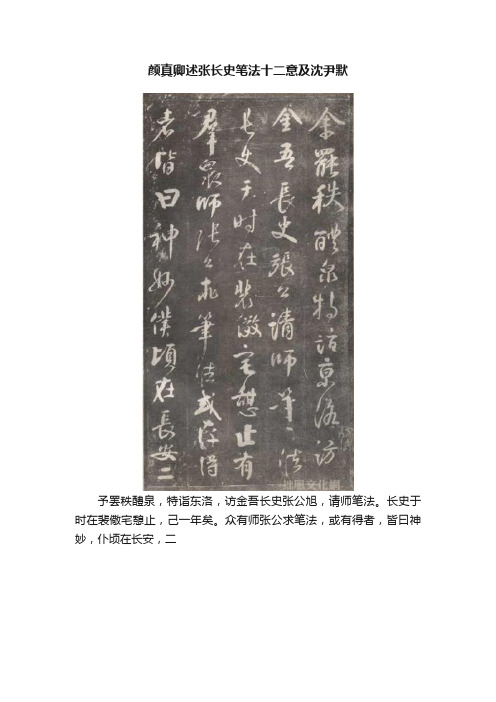 颜真卿述张长史笔法十二意及沈尹默
余罷秩醴泉特詣京洛訪
金吾長史張公請師筆法
長史于時在裴儆宅憩止有
羣眾師張公求筆法或存得
者皆曰神妙僕頃在長安二
予罢秩醴泉，特诣东洛，访金吾长史张公旭，请师笔法。长史于
时在裴儆宅憩止，己一年矣。众有师张公求笔法，或有得者，皆曰神
妙，仆顷在长安，二